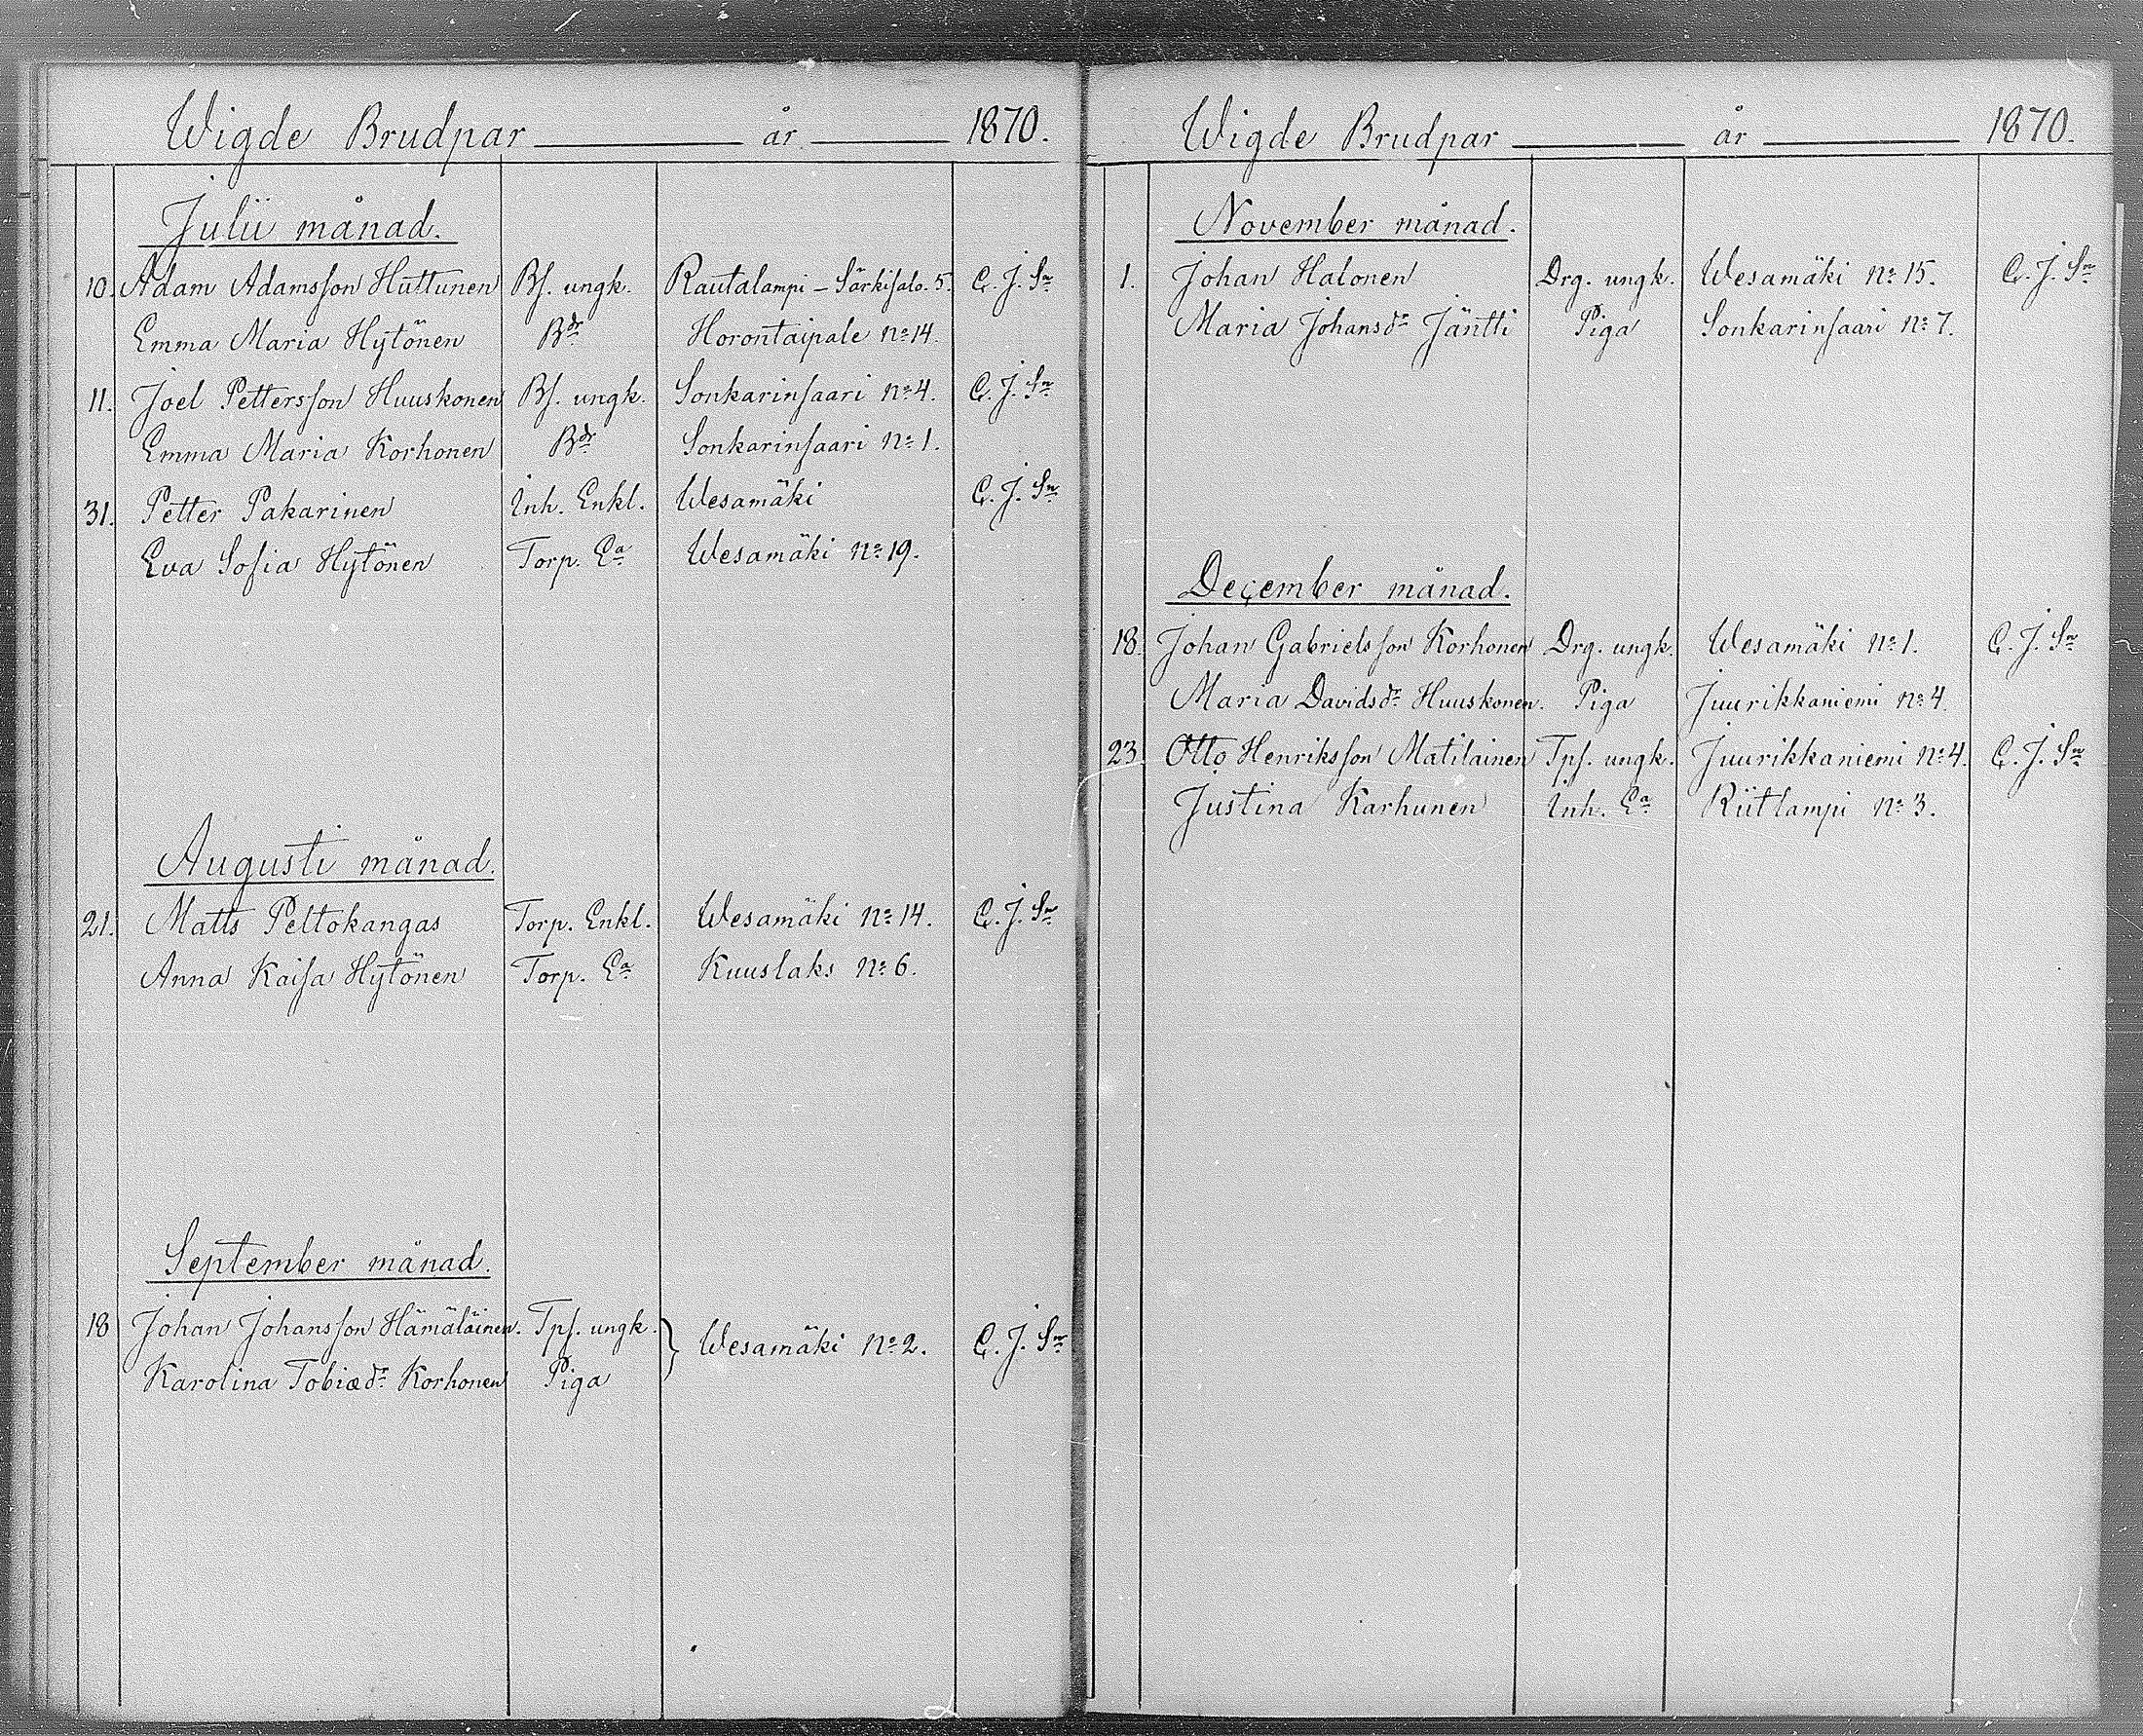 Wigde Brudpar år 1870.
Julii månad.
10. Adam Adamsson Huttunen Bs. ungk. Rautalampi – Särkisalo. 5. C. J. Sn
Emma Maria Hytönen Bdr Horontaipale No 14.
11. Joel Pettersson Huuskonen Bs. ungk. Sonkarinsaari No 4. C. J. Sn
Emma Maria Korhonen Bdr Sonkarinsaari No 1.
31. Petter Pakarinen Inh. Enkl. Wesamäki C. J. Sn
Eva Sofia Hytönen Torp. Ea Wesamäki No 19.
Augusti månad.
21. Matts Peltokangas Torp. Enkl. Wesamäki No 14. C. J. Sn
Anna Kaisa Hytönen Torp. Ea Kuuslaks No 6.
September månad.
18 Johan Johansson Hämäläinen. Tps. ungk. } Wesamäki No 2. C. J. Sn
Karolina Tobiædr Korhonen Piga
Wigde Brudpar år 1870.
November månad.
1. Johan Halonen Drg. ungk. Wesamäki No 15. C. J. Sn
Maria Johansdr Jäntti Piga Sonkarinsaari No 7.
December månad.
18. Johan Gabrielsson Korhonen Drg. ungk. Wesamäki No 1. C. J. Sn
Maria Davidsdr Huuskonen. Piga Juurikkaniemi No 4.
23 Otto Henriksson Matilainen Tps. ungk. Juurikkaniemi No 4. C. J. Sn
Justina Karhunen Inh. Ea Riitlampi No 3.